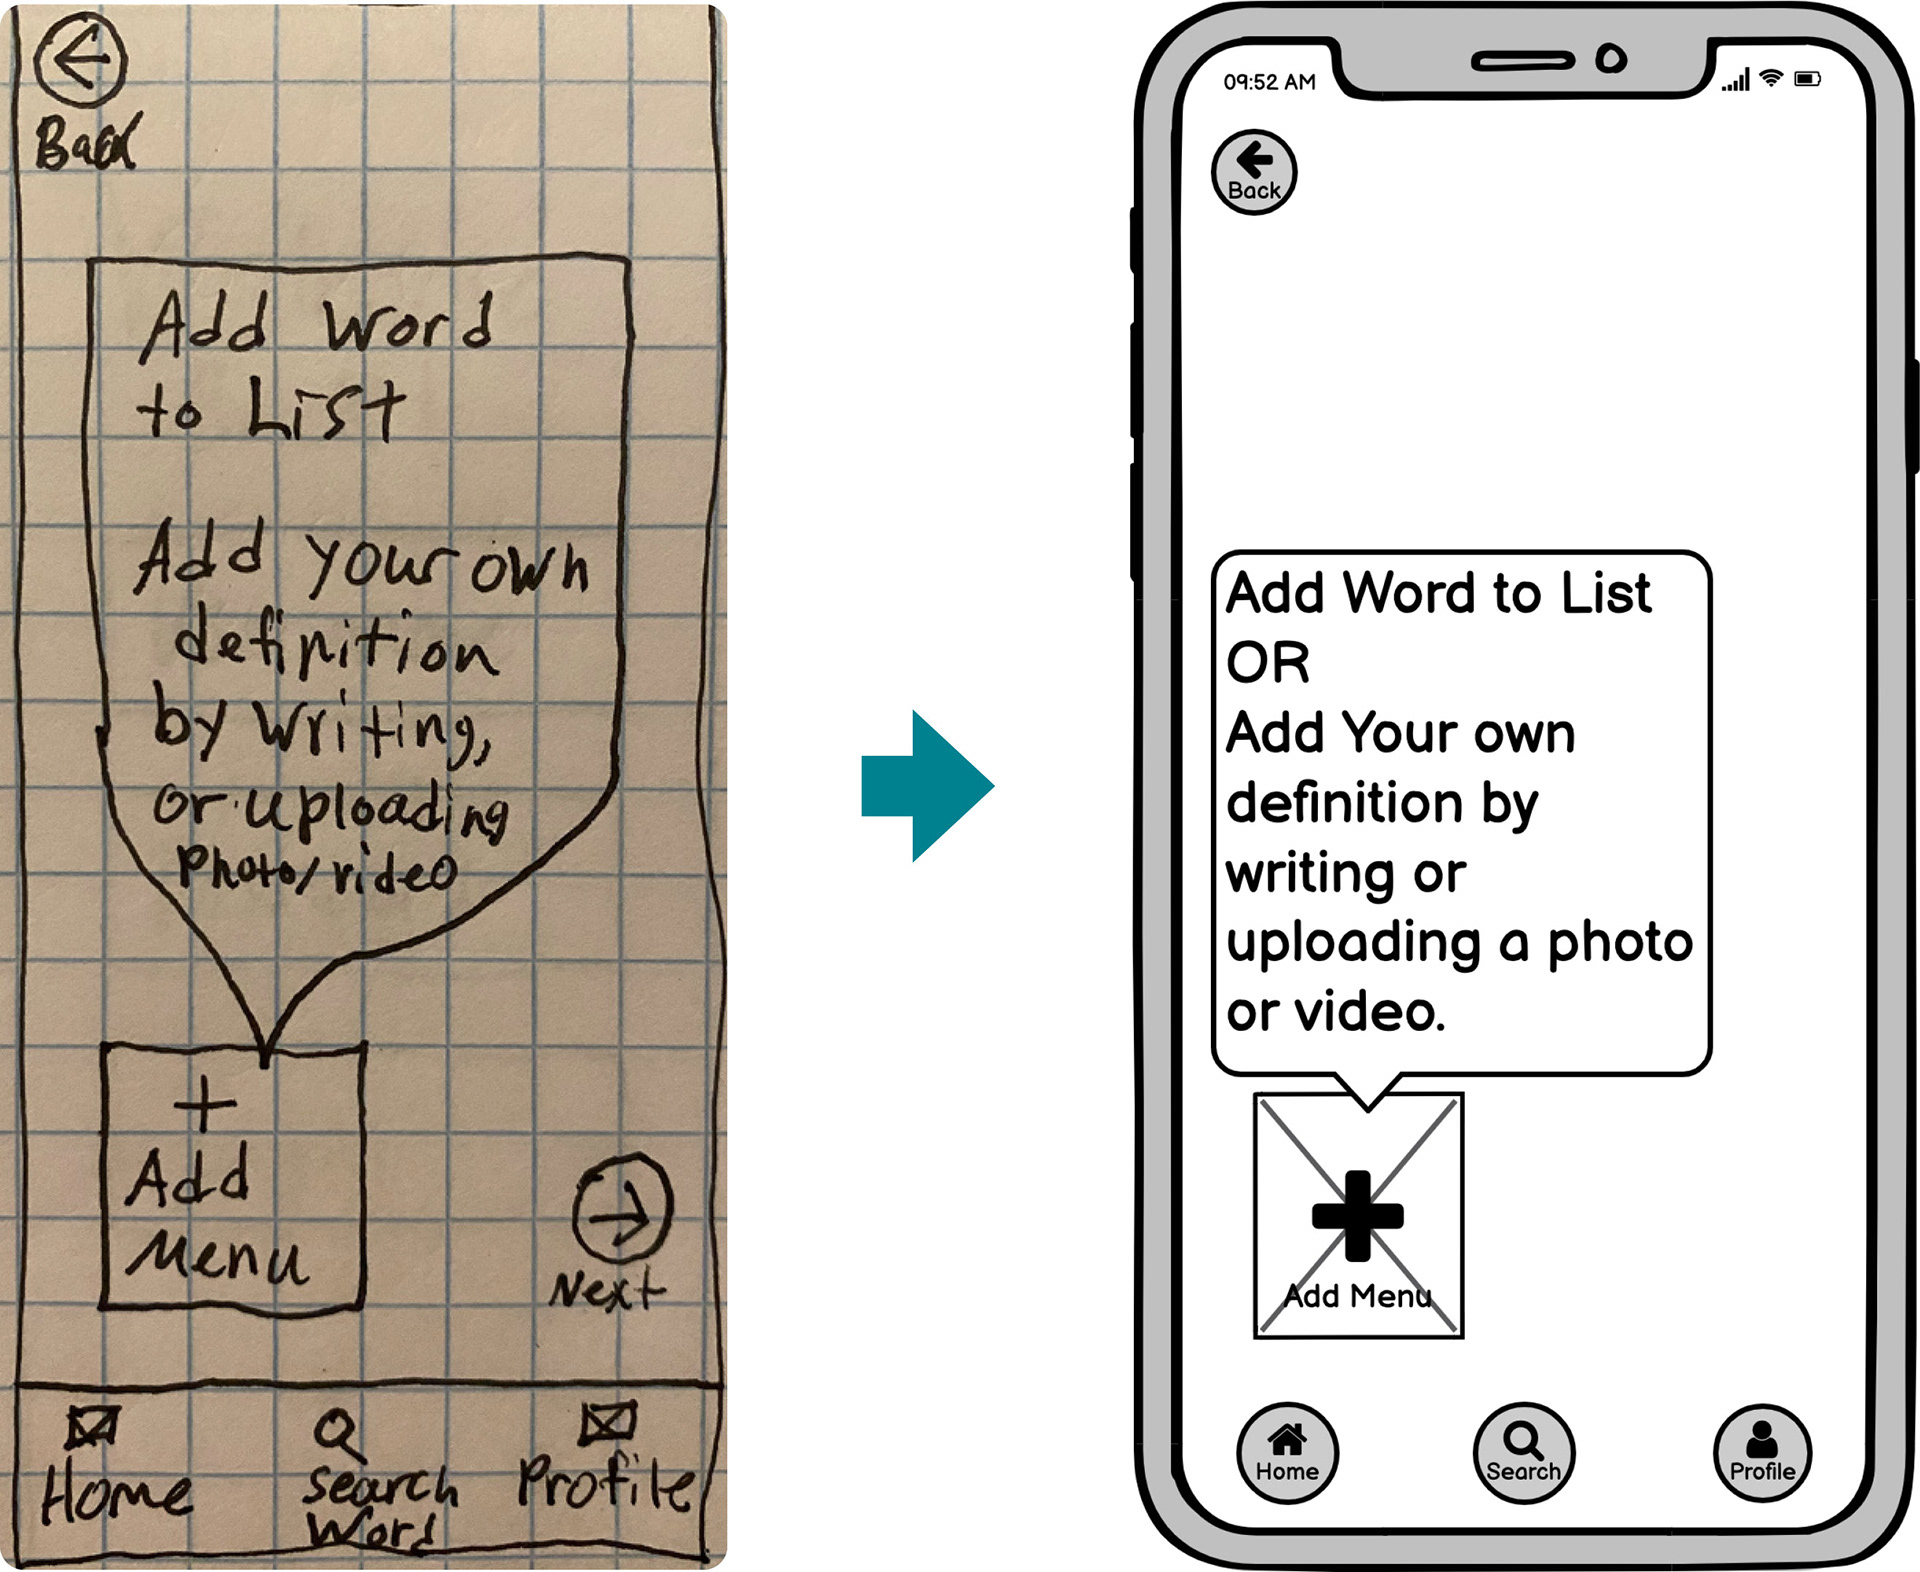 Back
Add Word
to List
Add your own
definition
by writing,
or uploading
photo/video
+
Add
Menu
Next
Home
Search
Word
Profile
09:52 AM
Back
Add Word to List
OR
Add Your own
definition by
writing or
uploading a photo
or video.
Add Menu
Home
Search
Profile